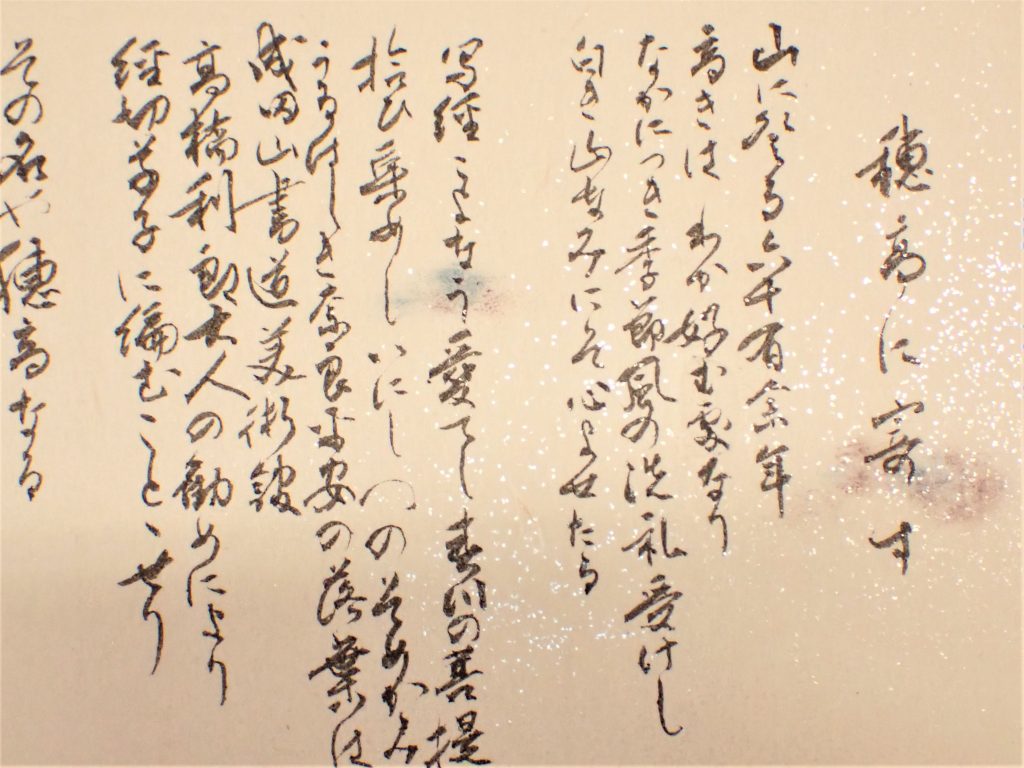 穂高に寄す
山に登る六十有余年
高きはわが好む処なり
なかにつき季節風の洗礼受けし
白き山なみにそ心よせたる
写経こよなう愛でし
の菩提
拾ひ集めしいにしへのそめがみ
うるはしき奈良平安の落葉は
成田山書道美術館
高橋利郎大人の勧めにより
経切草子に編むこととせり
その名や穂高なる